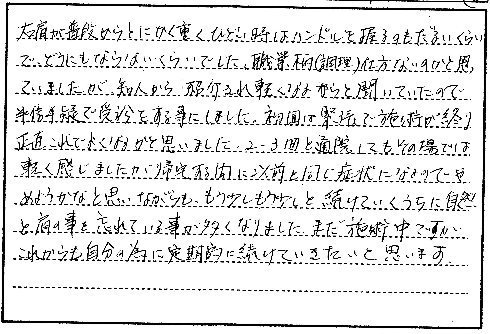 右肩が普段からとにかく重くひどい時はハンドルを握るのもだるいくらい
で、どうにもならないくらいでした。職業柄(調理)仕方ないのかと思っ
ていましたが、知人から紹介され軽くなるからと聞いていたので
半信半疑で受診をする事にしました。初回は緊張で施術が終り
正直これでよくなるかと思いました。2~3回と通院してもその場では
軽く感じましたが帰宅する内に以前と同じ症状になるので
めようかなと思いながらも、もう少しもう少しと続けていくうちに自然
と肩の事を忘れている事が多くなりました。まだ施術中ですが
これからも自分の為に定期的に続けていきたいと思います